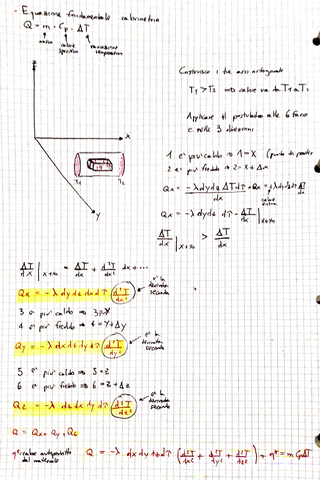 - Equazione fondamentale calorimetria
Q = m · Cp · ΔT
massa calore specifico variazione temperatura
z
x
y
T1 T2
Costruisco i tre assi ortogonali
T1 > T2 => calore va da T1 a T2
Applicare il postulato alle 6 facce
e nelle 3 direzioni
1 e' più caldo => 1 = X (punto di partenza)
2 e' più freddo => 2 = X + Δx
Qx = -λ dy dz dτ - ΔT/dx | x+x0
ΔT/dx | x+x0 > ΔT/dx
ΔT/dx | x+x0 = ΔT/dx + d²T/dx² dx + ...
Qx = -λ dy dz dx dτ (d²T/dx²) e' la derivata seconda
3 e' più caldo => 3 = Y
4 e' più freddo => 4 = Y + Δy
Qy = -λ dx dz dy dτ (d²T/dy²) e' la derivata seconda
5 e' più caldo => 5 = Z
6 e' più freddo => 6 = Z + Δz
Qz = -λ dx dy dτ (d²T/dz²) e' la derivata seconda
Q = Qx, Qy, Qz
calore autoprodotto dal materiale
Q = -λ dx dy dz dτ (d²T/dx² + d²T/dy² + d²T/dz²) + q* = m Cp ΔT